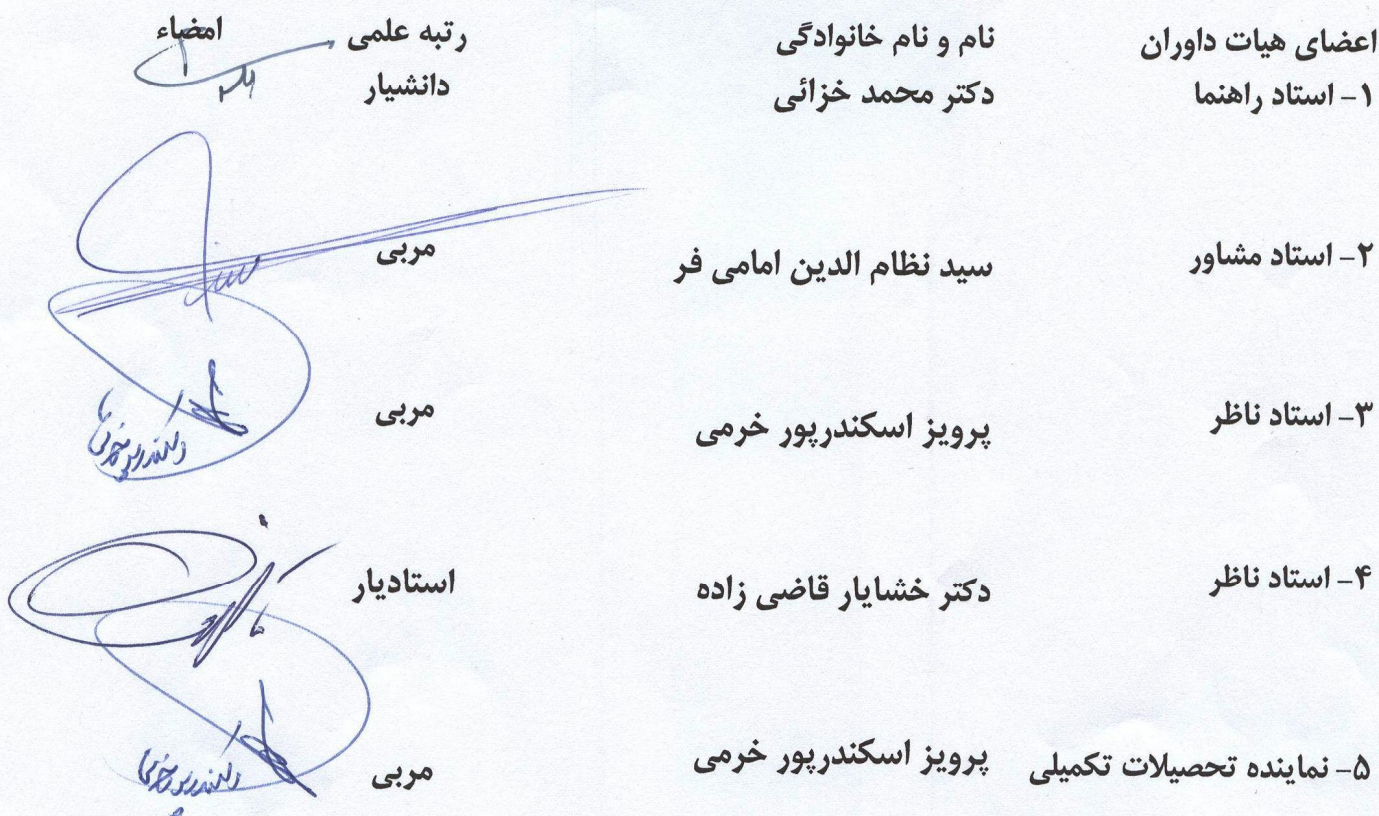 اعضای هیات داوران نام و نام خانوادگی رتبه علمی امضاء
۱- استاد راهنما دکتر محمد خزائی دانشیار
۲- استاد مشاور سید نظام الدین امامی فر مربی
۳- استاد ناظر پرویز اسکندرپور خرمی مربی
اسکندرپور خرمی
۴- استاد ناظر دکتر خشایار قاضی زاده استادیار
۵- نماینده تحصیلات تکمیلی پرویز اسکندرپور خرمی مربی
اسکندرپور خرمی